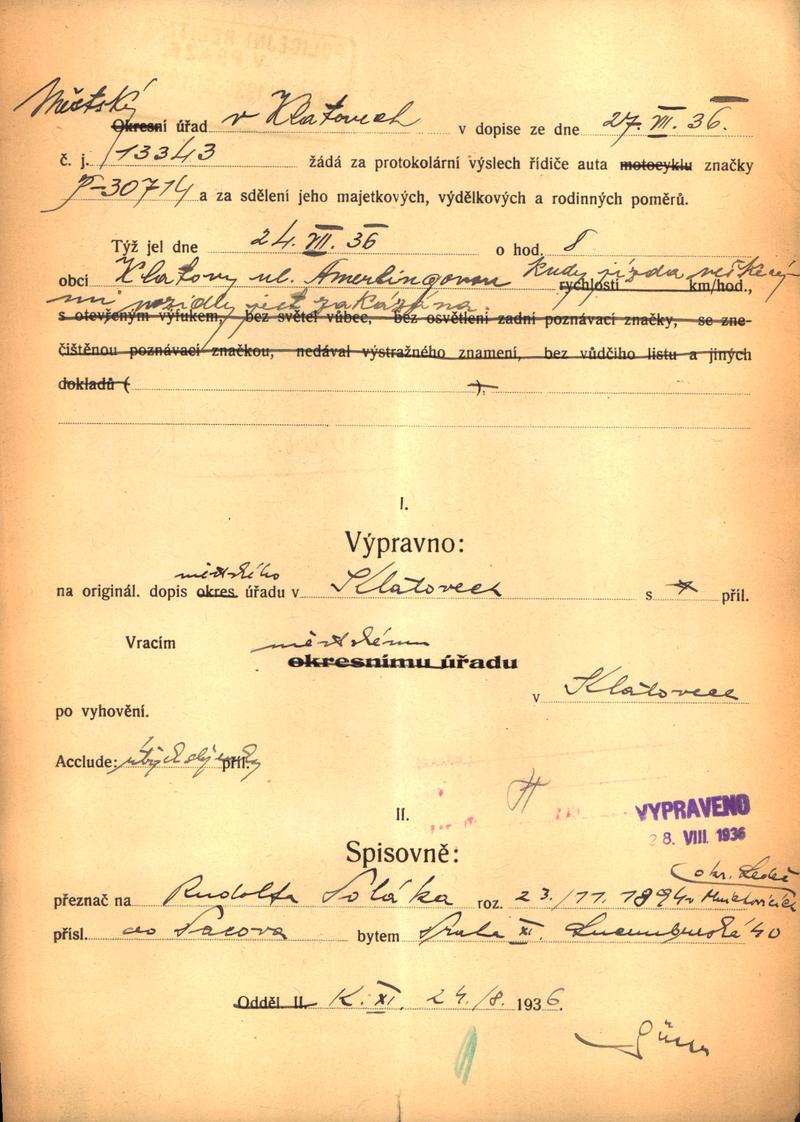 Městský
Okresní úřad v Klatovech v dopise ze dne 27. VII. 36.
č. j. 13343 žádá za protokolární výslech řidiče auta motocyklu značky
P-30714 a za sdělení jeho majetkových, výdělkových a rodinných poměrů.
Týž jel dne 24. VII. 36 o hod. 8
obcí Klatovy ul. Amerlingovou kudy jízda veškerý-
rychlostí km/hod.,
mi vozidly jest zakázána.
s otevřeným výfukem, bez světel vůbec, bez osvětlení zadní poznávací značky, se zne-
čištěnou poznávací značkou, nedával výstražného znamení, bez vůdčího listu a jiných
dokladů ( ),
I.
Výpravno:
městského
na originál. dopis okres. úřadu v Klatovech s příl.
Vracím městskému
okresnímu úřadu
v Klatovech
po vyhovění.
Acclude: příl.
II.
VYPRAVENO
28. VIII. 1936
Spisovně:
okr. Ledeč
přeznač na Rudolfa Poláka roz. 23./11. 1894 v
přísl. do Pacova bytem Praha XI. Lucemburská 40
Odděl. II. K. XI. 24./8. 1936.